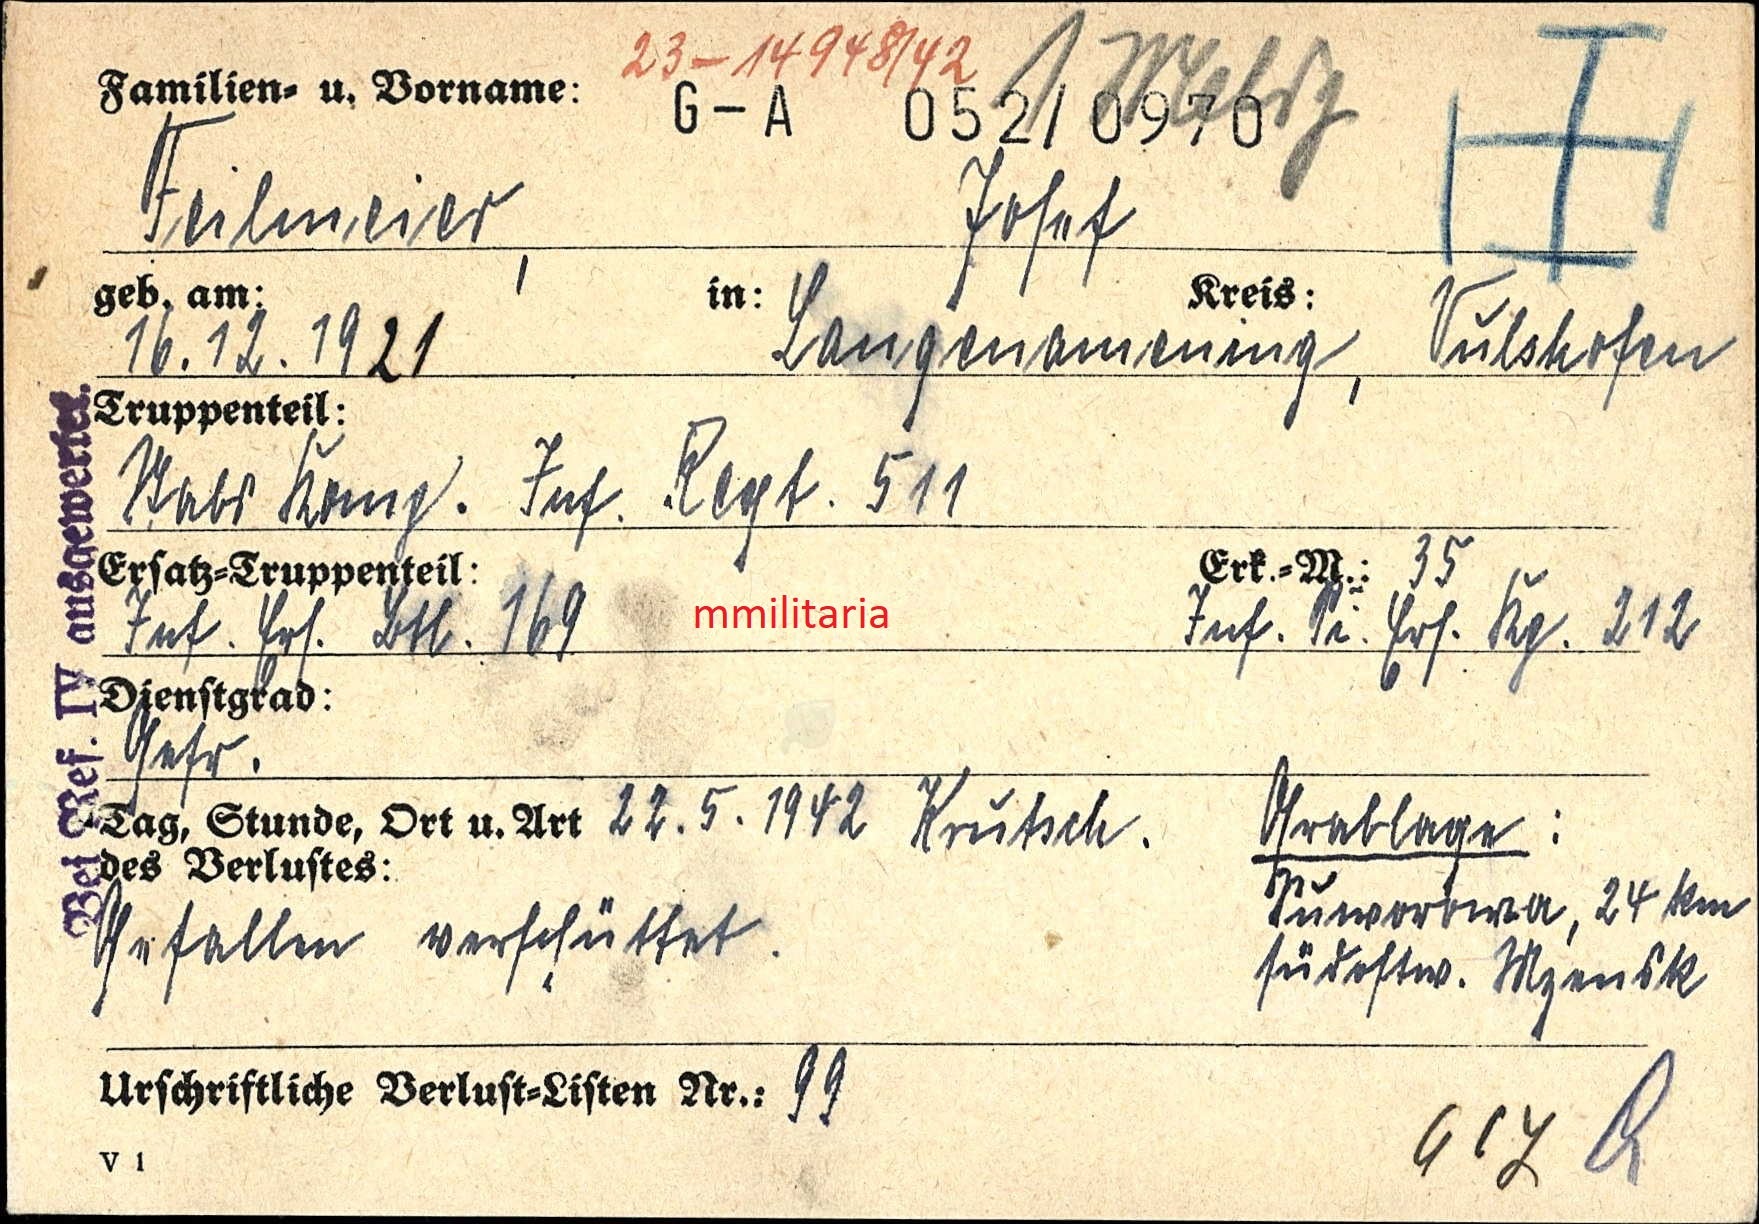 23-14948/42
Familien- u. Vorname:
G-A 052/0970
Feilmeier, Josef
geb. am: in: Kreis:
16.12.1921 Langenamening, Vulshofen
Truppenteil:
Stabs Komp. Inf. Regt. 511
Ersatz-Truppenteil: Erk.-M.: 35
Inf. Ers. Btl. 169 Inf. Pi. Ers. Kp. 212
mmilitaria
Dienstgrad:
Gefr.
Tag, Stunde, Ort u. Art 22.5.1942 Krutsch. Grablage:
des Verlustes:
Gefallen verschüttet. Suworowa, 24 km
südostw. Mzensk
Urschriftliche Verlust-Listen Nr.: 99
V 1
Bei Ref. IV ausgewertet.